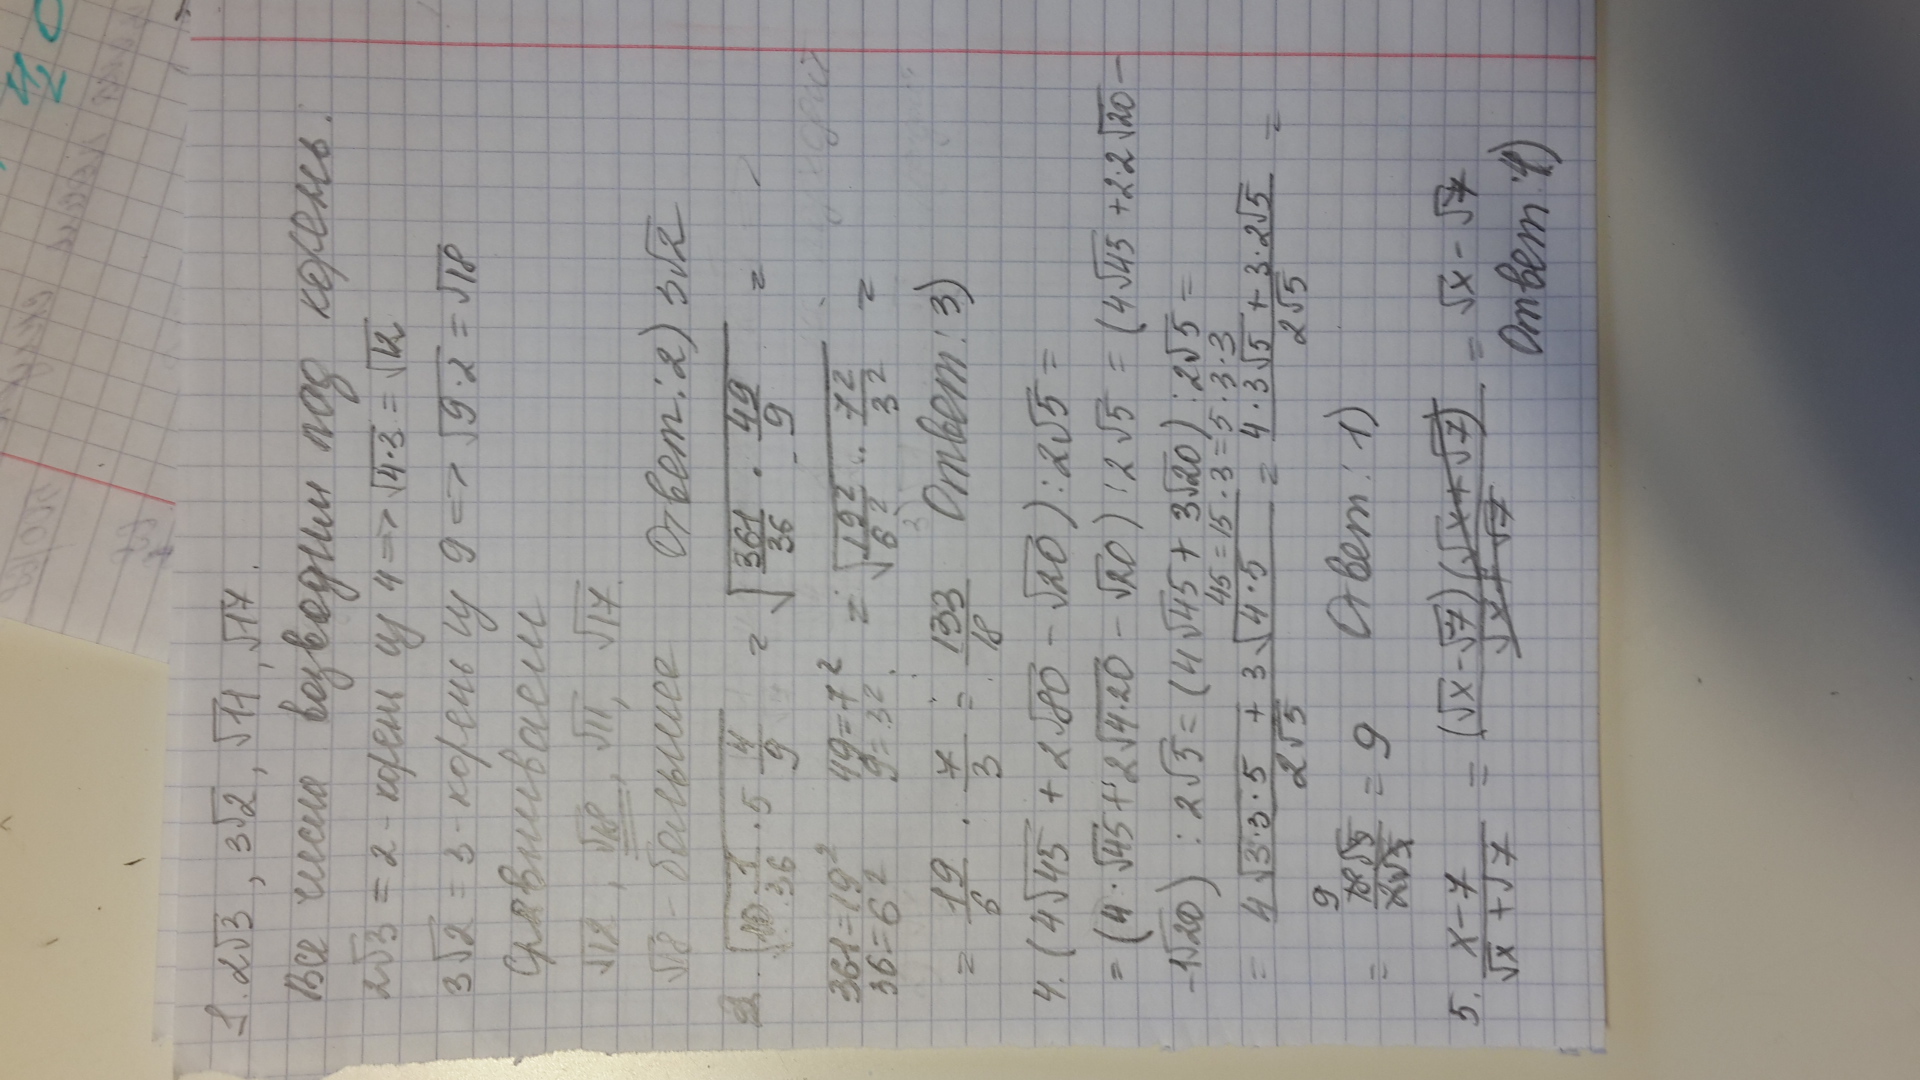 1. 2√3, 3√2, √11, √17.
Все числа возводим под корень.
2√3 = 2 - корень из 4 => √4·3 = √12
3√2 = 3 - корень из 9 => √9·2 = √18
Сравниваем
√12, √18, √11, √17.
√18 - большее Ответ: 2) 3√2
2. √(10 1/36 · 5 4/9) = √(361/36 · 49/9) =
361=19² 49=7² = √(19²/6² · 7²/3²) =
36=6² 9=3²
= 19/6 · 7/3 = 133/18 Ответ: 3)
4. (4√45 + 2√80 - √20) : 2√5 =
= (4·√45 + 2√4·20 - √20) : 2√5 = (4√45 + 2·2√20 -
-1√20) : 2√5 = (4√45 + 3√20) : 2√5 =
45=15·3=5·3·3
= (4√3·3·5 + 3√4·5)/2√5 = (4·3√5 + 3·2√5)/2√5 =
= 18√5/2√5 = 9 Ответ: 1)
9
5. (x-7)/(√x+√7) = (√x-√7)(√x+√7)/(√x+√7) = √x-√7